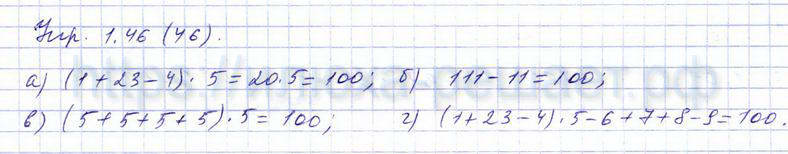 Упр. 1.46 (46).
а) (1+23-4)·5=20·5=100; б) 111-11=100;
в) (5+5+5+5)·5=100; г) (1+23-4)·5-6+7+8-9=100.